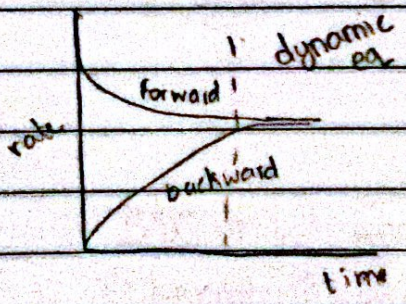 dynamic
eq
forward
rate
backward
time